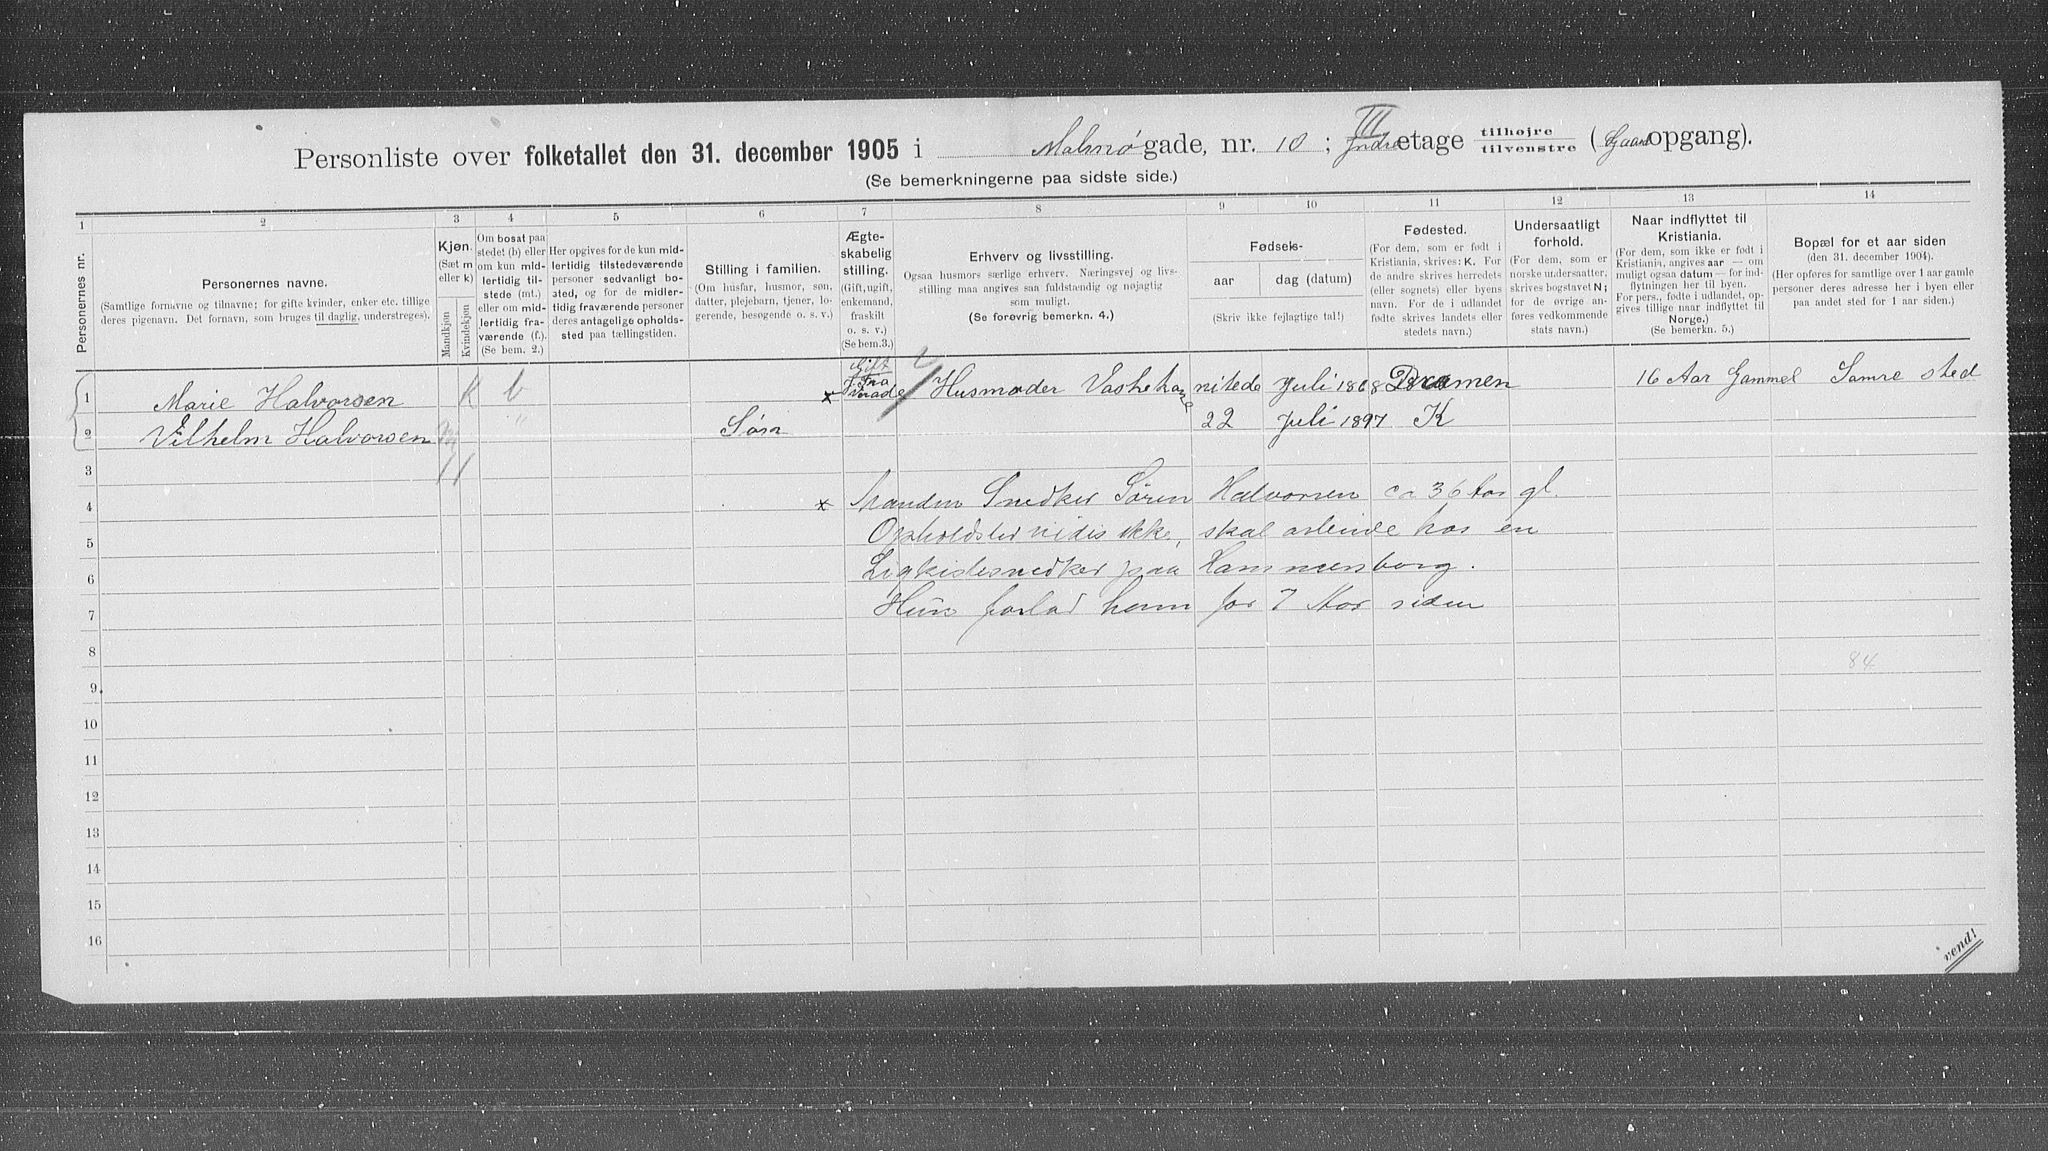 Personliste over folketallet den 31. december 1905 i Malmøgade, nr. 10; III Indre etage tilhøjre tilvenstre (Gaard opgang).
(Se bemerkningerne paa sidste side.)
1 2 3 4 5 6 7 8 9 10 11 12 13 14
Personernes nr.
Personernes navne.
(Samtlige fornavne og tilnavne; for gifte kvinder, enker etc. tillige
deres pigenavn. Det fornavn, som bruges til daglig, understreges).
Kjøn.
(Sæt m
eller k)
Mandkjøn
Kvindekjøn
Om bosat paa
stedet (b) eller
om kun mid-
lertidig til-
stede (mt.)
eller om mid-
lertidig fra-
værende (f.).
(Se bem. 2.)
Her opgives for de kun mid-
lertidig tilstedeværende
personer sedvanligt bo-
sted, og for de midler-
tidig fraværende personer
deres antagelige opholds-
sted paa tællingstiden.
Stilling i familien.
(Om husfar, husmor, søn,
datter, plejebarn, tjener, lo-
gerende, besøgende o. s. v.)
Ægte-
skabelig
stilling.
(Gift, ugift,
enkemand,
fraskilt
o. s. v.)
(Se bem. 3.)
Erhverv og livsstilling.
Ogsaa husmors særlige erhverv. Næringsvej og livs-
stilling maa angives saa fuldstændig og nøjagtig
som muligt.
(Se forøvrig bemerkn. 4.)
Fødsels-
aar
dag (datum)
(Skriv ikke fejlagtige tal!)
Fødested.
(For dem, som er født i
Kristiania, skrives: K. For
de andre skrives herredets
(eller sognets) eller byens
navn. For de i udlandet
fødte skrives landets eller
stedets navn.)
Undersaatligt
forhold.
(For dem, som er
norske undersaatter,
skrives bogstavet N;
for de øvrige an-
føres vedkommende
stats navn.)
Naar indflyttet til
Kristiania.
(For dem, som ikke er født i
Kristiania, angives aar — om
muligt ogsaa datum — for ind-
flytningen her til byen.
For pers., fødte i udlandet, op-
gives tillige naar indflyttet til
Norge.)
(Se bemerkn. 5.)
Bopæl for et aar siden
(den 31. december 1904).
(Her opføres for samtlige over 1 aar gamle
personer deres adresse her i byen eller
paa andet sted for 1 aar siden.)
Gift
1 Marie Halvorsen K b Husmoder Vaskekone Juli 1868 Dramen 16 Aar Gammel Samre sted
2 Vilhelm Halvorsen m " Søn 22 Juli 1897 K
3
4 x Manden Snedker Søren Halvorsen ca 36 Aar gl.
5 Opholdsted vides ikke, skal arbeide hos en
6 Ligkistesnedker paa Hammersborg.
7 Hun forlod ham for 7 Aar siden
8
84
9
10
11
12
13
14
15
16
vend!